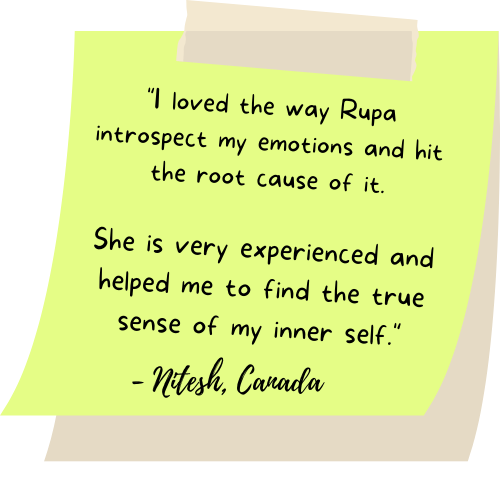 "I loved the way Rupa
introspect my emotions and hit
the root cause of it.
She is very experienced and
helped me to find the true
sense of my inner self."
- Nitesh, Canada